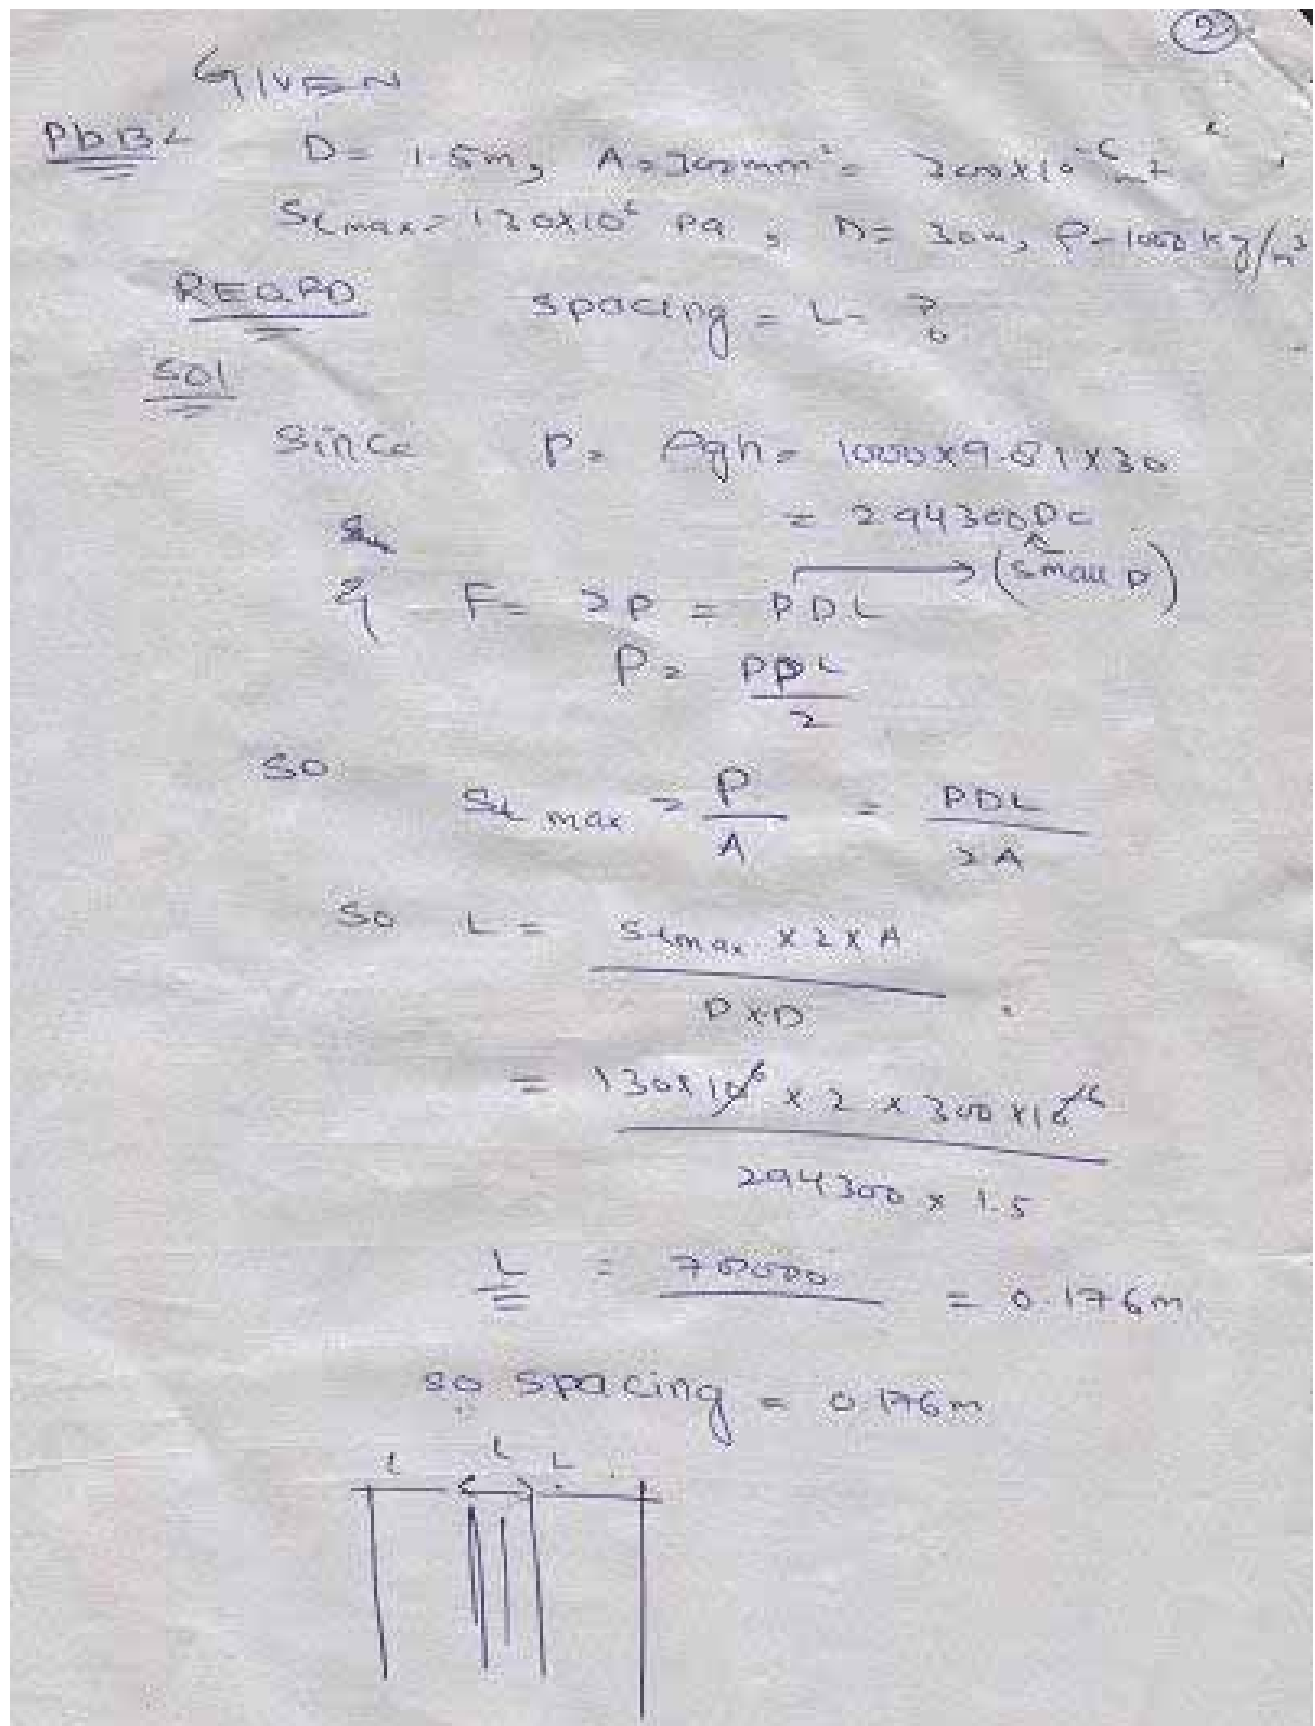 2
GIVEN
D= 1.5m, A=300mm²= 300x10⁻⁶ m²
St max= 130x10⁶ Pa, h= 30m, ρ=1000 kg/m³
REQ.RD spacing = L= ?
Sol
Since P= ρgh= 1000x9.81x30
= 294300Pa
F= 2P = PDL → (small p)
P= PDL/2
SO
St max = P/A = PDL/2A
So L= Stmax x 2 x A / PxD
= 130x10⁶ x 2 x 300 x10⁻⁶ / 294300 x 1.5
L = = 0.176m
so spacing = 0.176m
L L L